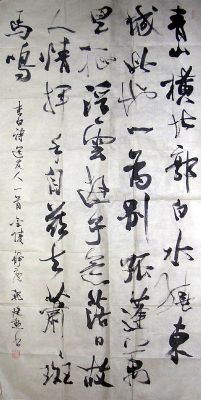 青山橫北郭白水繞東
城此地一為別孤蓬萬
里征浮雲遊子意落日故
人情揮手自茲去蕭〻斑
馬鳴
李白詩送友人一首 金陵